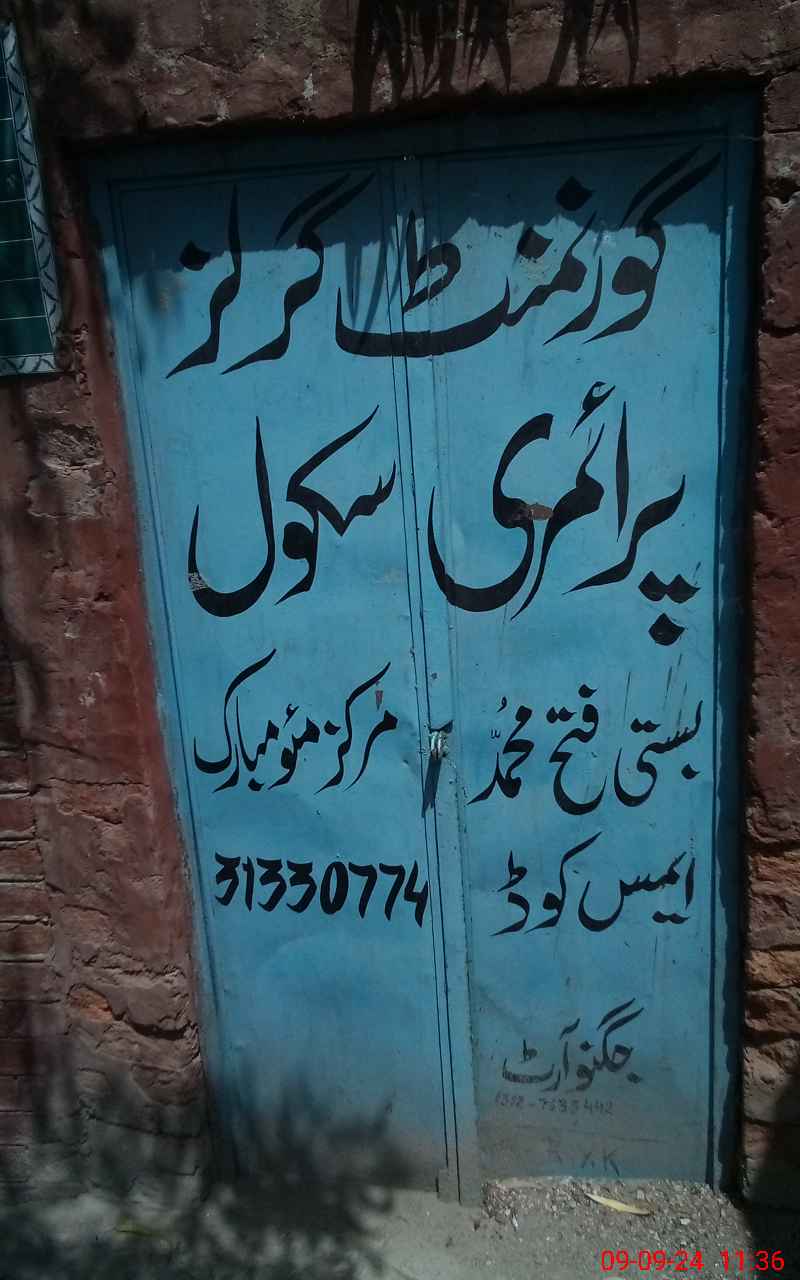 گورنمنٹ گرلز
پرائمری سکول
بستی فتح محمدؐ مرکز مئو مبارک
ایمس کوڈ 31330774
جگنو آرٹ
09-09-24 11:36